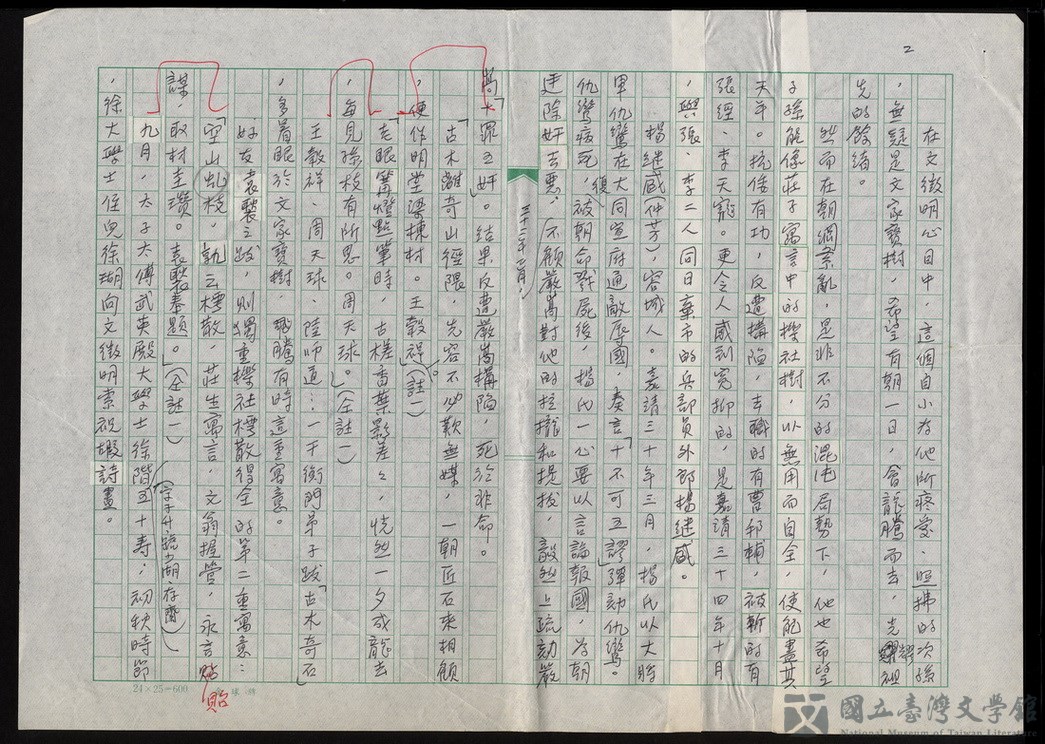 2
在文徵明心目中,這個自小為他所疼愛、照拂的次孫
,無疑是文家寶樹,希望有朝一日,會龍騰而去,光耀祖
先的餘緒。
然而在朝綱紊亂,是非不分的混沌局勢下,他也希望
子孫能像莊子寓言中的櫟社樹,以無用而自全,使能盡其
天年。抗倭有功,反遭構陷,去職的有曹邦輔,被斬的有
張經、李天寵。更令人感到冤抑的,是嘉靖三十四年十月
,與張、李二人同日棄市的兵部員外郎楊繼盛。
楊繼盛(仲芳),容城人。嘉靖三十年三月,楊氏以大將
軍仇鸞在大同宣府通敵辱國,奏言「十不可五謬」彈劾仇鸞。
仇鸞病死,復被朝命戮屍後,楊氏一心要以言論報國,為朝
廷除奸去惡,不顧嚴嵩對他的拉攏和提拔,毅然上疏劾嚴
三十二年正月,
嵩「十罪五奸」。結果反遭嚴嵩構陷,死於非命。
「古木離奇山經隈,先容不必歎無媒,一朝匠石來相顧
,便作明堂梁棟材。王穀祥」。(註一)
「老眼篝燈點筆時,古槎喬葉影差々,恍然一夕成龍去
,每見孫枝有所思。周天球」。(仝註一)
王穀祥、周天球、陸師道…一干衡門弟子跋「古木奇石」
,多着眼於文家寶樹,飛騰有時這重寓意。
好友袁褧之跋,則獨重櫟社樗散得全的第二重寓意:
「空山虬枝,孰云樗散,莊生寓言,文翁握管,永言貽
貽
謀,取材圭瓚。袁褧奉題」。(仝註一)
(字子升號少湖、存齋)
九月,太子太傅武英殿大學士徐階五十壽;初秋時節
,徐大學士任兒徐瑚向文徵明索祝嘏詩畫。
24×25=600
國立臺灣文學館
National Museum of Taiwan Literature